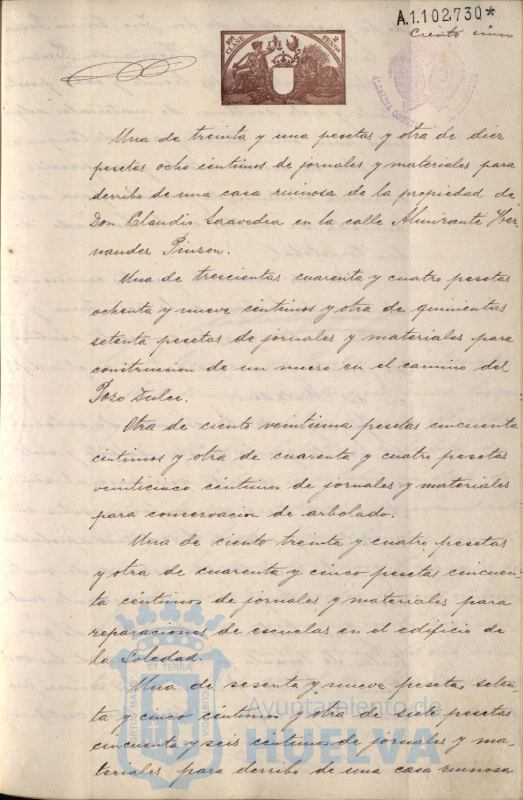 A.1.102.730*
Ciento cinco
10ª CLASE 2 PESETAS
Una de treinta y una pesetas y otra de diez
pesetas ocho céntimos de jornales y materiales para
derribo de una casa ruinosa de la propiedad de
Don Claudio Saavedra en la calle Almirante Her-
nandez Pinzon.
Una de trescientas cuarenta y cuatro pesetas
ochenta y nueve céntimos y otra de quinientas
setenta pesetas de jornales y materiales para
construccion de un muro en el camino del
Pozo Dulce.
Otra de ciento veintiuna pesetas cincuenta
centimos y otra de cuarenta y cuatro pesetas
veinticinco céntimos de jornales y materiales
para conservacion de arbolado.
Una de ciento treinta y cuatro pesetas
y otra de cuarenta y cinco pesetas cincuen-
ta céntimos de jornales y materiales para
reparaciones de escuelas en el edificio de
la Soledad.
Una de sesenta y nueve pesetas seten-
ta y cinco céntimos y otra de siete pesetas
cincuenta y seis centimos de jornales y ma-
teriales para derribo de una casa ruinosa
PORTUS MARIS ET TERRAE CUSTODIA
Ayuntamiento de
HUELVA